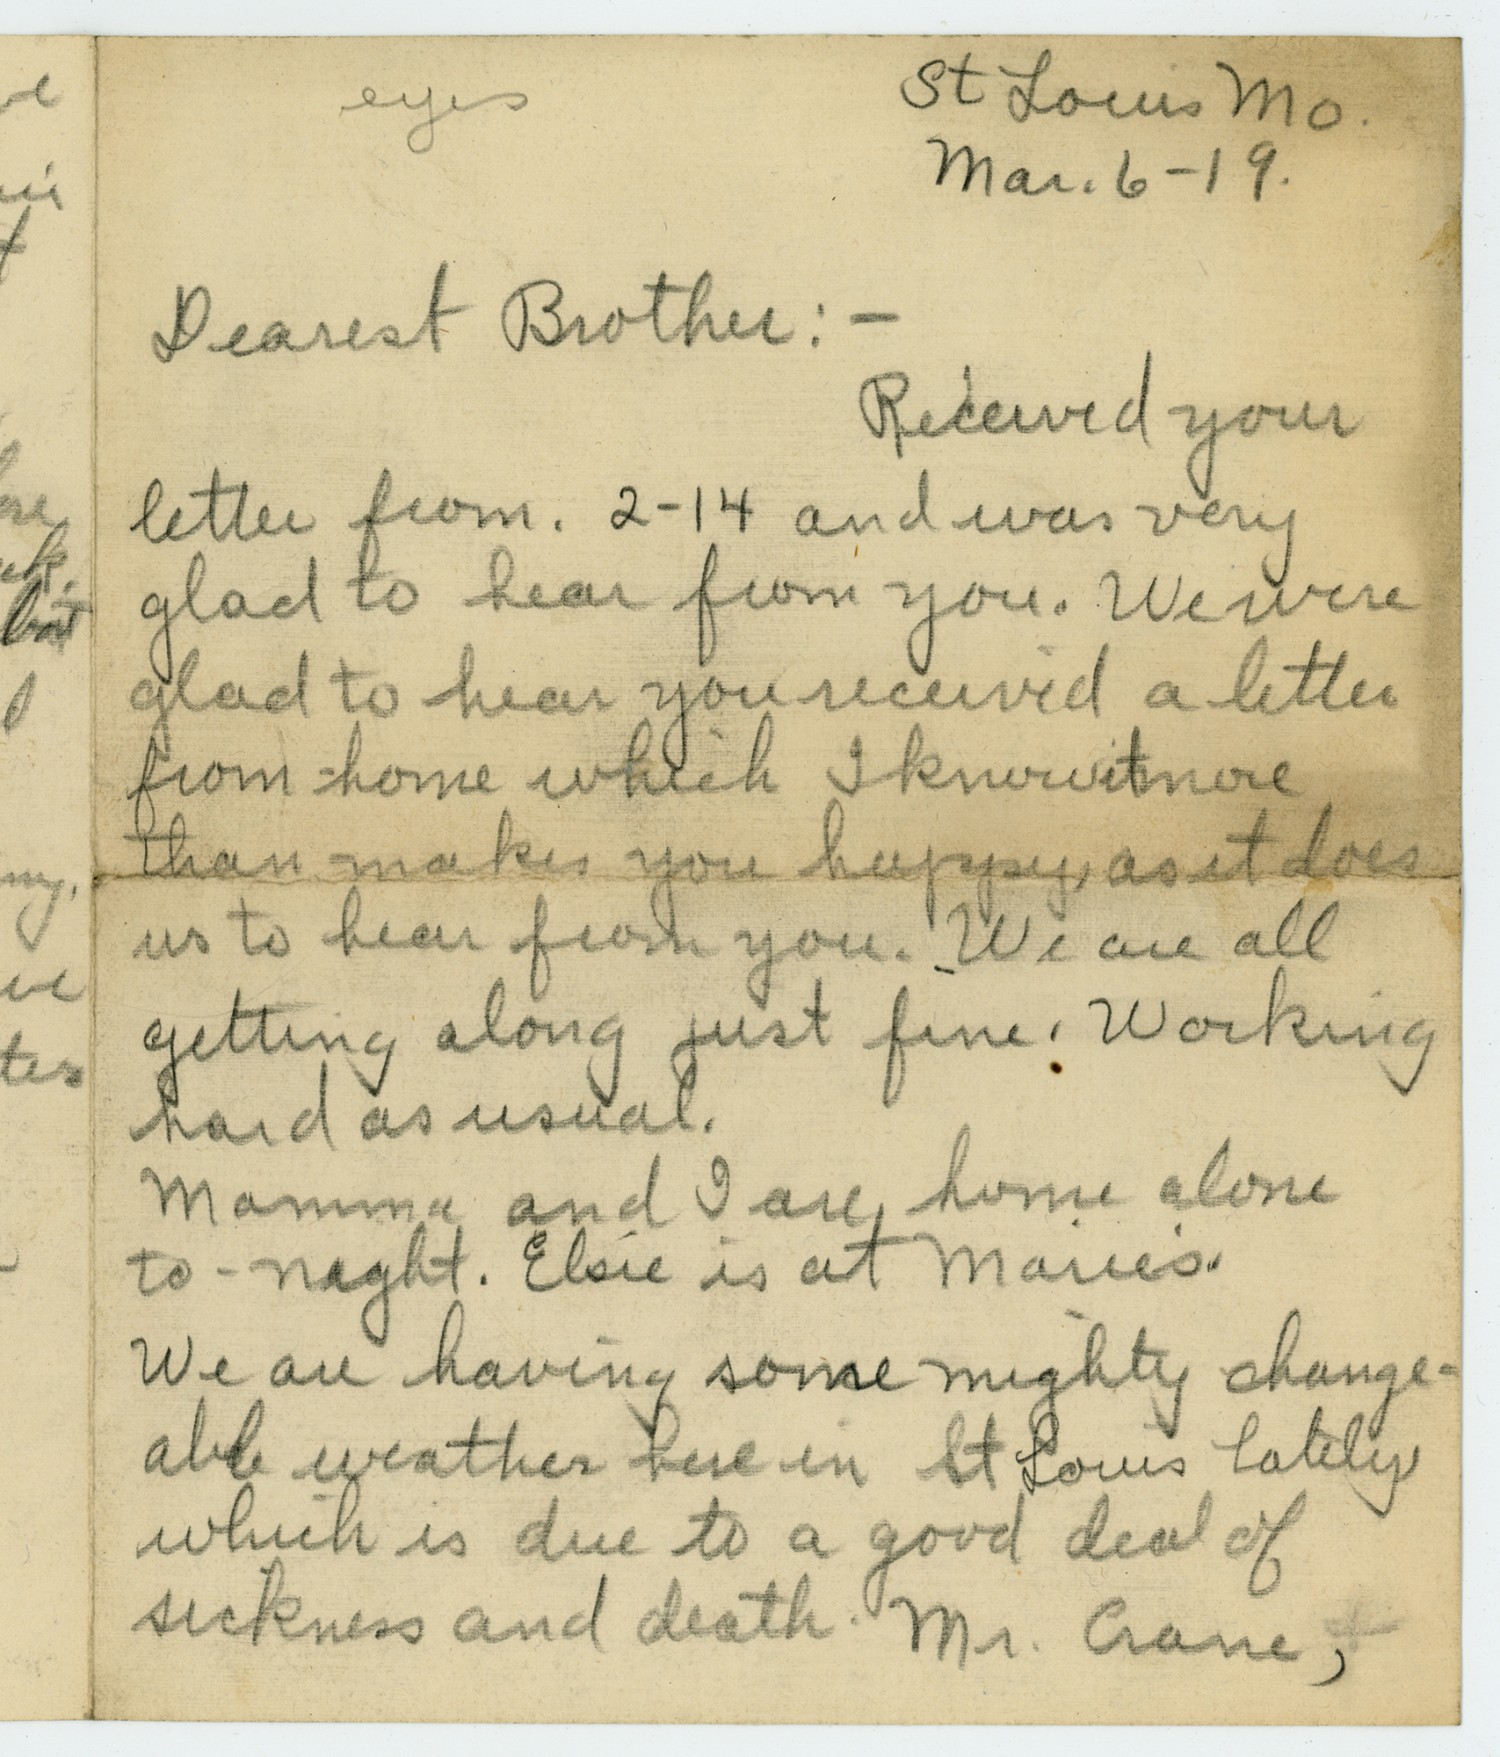 eyes
St Louis Mo.
Mar. 6-19.
Dearest Brother:-
Received your
letter from. 2-14 and was very
glad to hear from you. We were
glad to hear you received a letter
from home which I know it more
than makes you happy, as it does
us to hear from you. We are all
getting along just fine. Working
hard as usual.
Momma and I are, home alone
to-night. Elsie is at Marie's.
We are having some mighty change-
able weather here in St Louis lately
which is due to a good deal of
sickness and death. Mr. Crane,